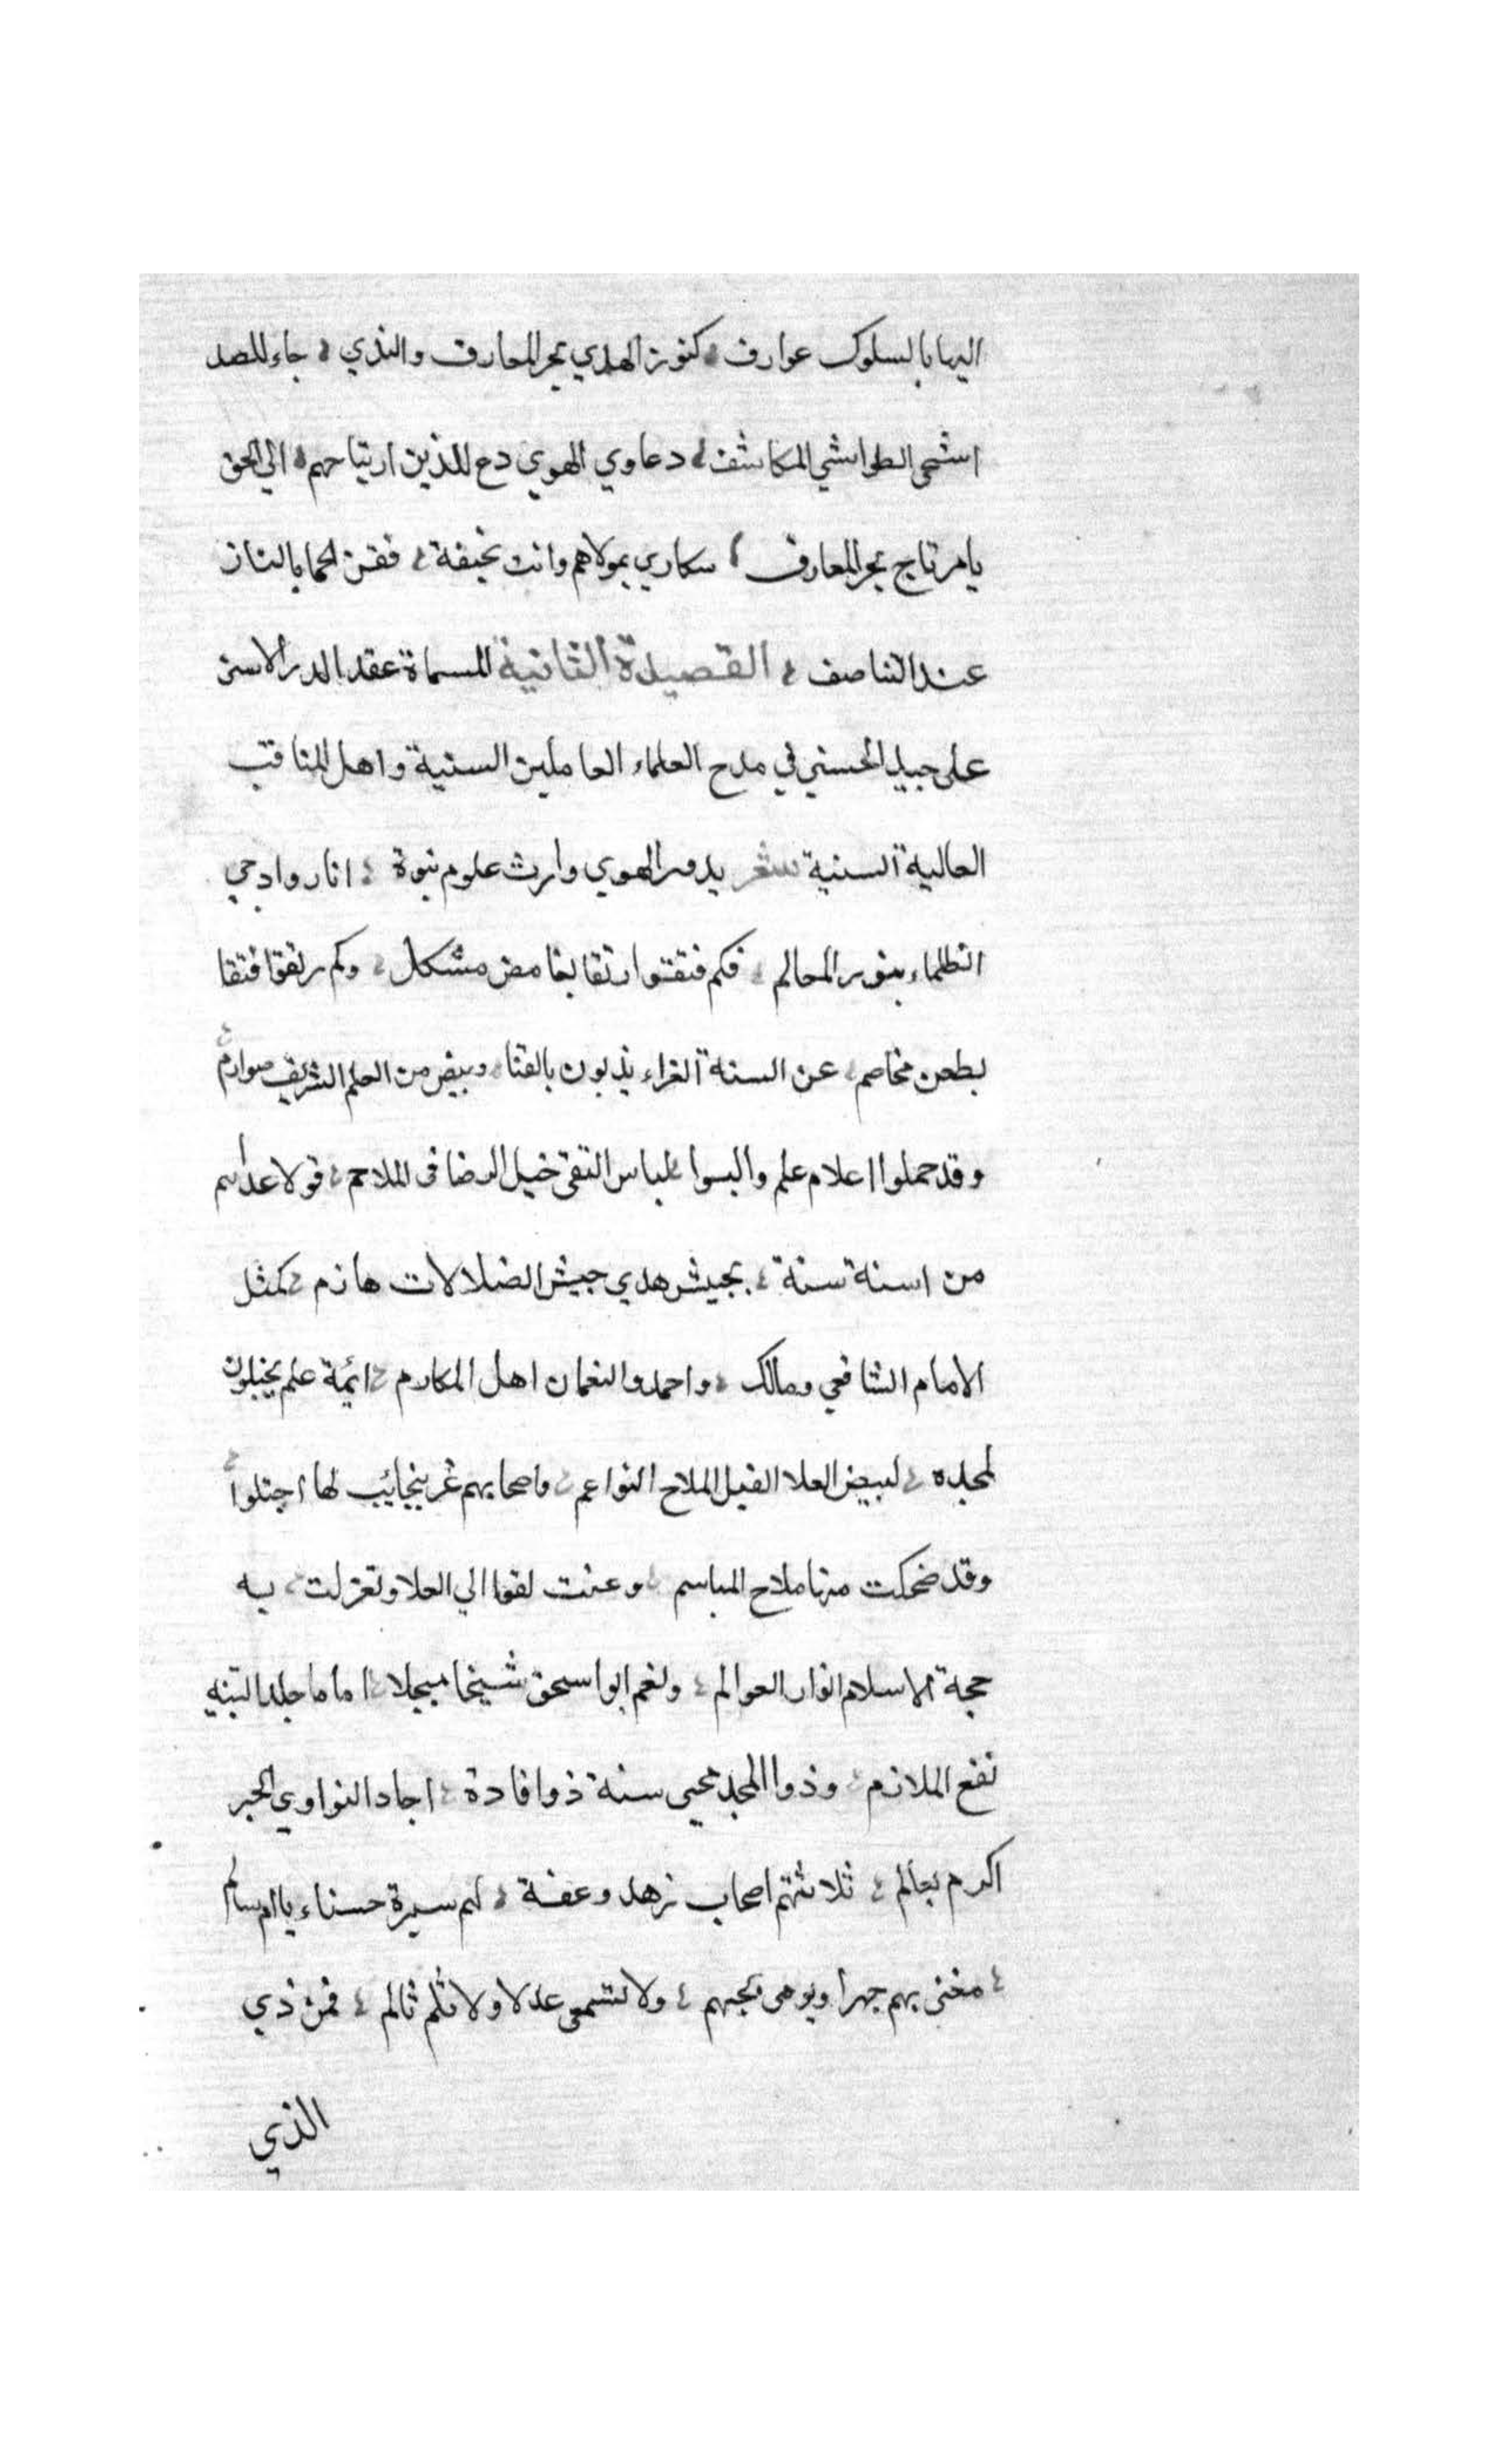 اليها بالسلوك عوارف كنوز الهدي بحر المعارف والندي جاء للصد
اشمى الطواشي المكاشف دعاوي الهوي دع للذين ارتياحهم الي الحق
يا مرتاج بحر المعارف سكاري بمولاهم وانت بجيفة فقن الحما بالتناز
عند التناصف القصيدة الثانية المسماة عقد الدر الاسنى
على جيد الحسني في مدح العلماء العاملين السنية واهل المناقب
العالية السنية شعر بدور الهوي وارث علوم نبوة اناروا دجي
الظلماء بنور المعالم فكم فتقوا رتقا بغامض مشكل وكم رتقوا فتقا
بطعن مخاصم عن السنة الغراء يذبون بالقنا وبيض من العلم الشريف صوارم
وقد حملوا اعلام علم والبسوا لباس التقى خيل الرضا فى الملاحم
من اسنة سنة بجيش هدي جيش الضلالات هازم كمثل
الامام الشافعي ومالك واحمد والنعمان اهل المكارم ائمة علم
لمجده لبيض العلا الملاح النواعم واصحابهم غر نجايب لها اجتلوا
وقد ضحكت منها ملاح المباسم وغنت لقوا الي العلا وتغزلت به
حجة الاسلام انوار العوالم ونعم ابوا سحق شيخا مبجلا اماما جلد التنبيه
نفع الملازم وذوا المجد محيى سنة ذوا فادة اجاد النواوي الحبر
اكرم بعالم ثلاثتهم اصحاب زهد وعفة لهم سيرة حسناء يا ام سالم
مغنى بهم جهرا وبوحى بحبهم ولا تسمى عدلا ولا ثلم ثالم فمن ذي
الذي